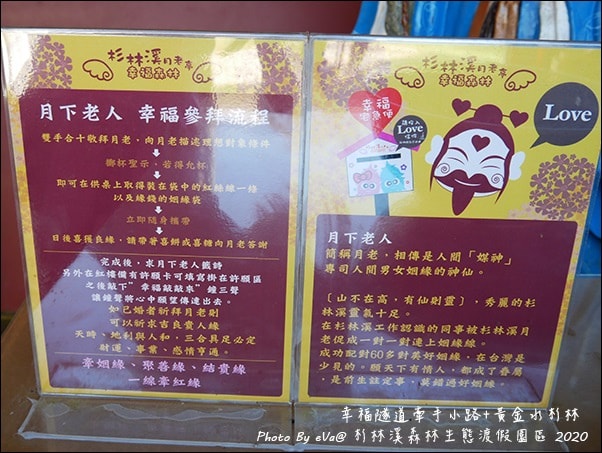 杉林溪月老亭
幸福森林
月下老人 幸福參拜流程
雙手合十敬拜月老，向月老描述理想對象條件
擲杯聖示，若得允杯
即可在供桌上取得裝在袋中的紅絲線一條
以及緣錢的姻緣袋
立即隨身攜帶
日後喜獲良緣，請帶著喜餅或喜糖向月老答謝
完成後，求月下老人籤詩
另外在紅樓備有許願卡可填寫掛在許願區
之後敲下"幸福敲敲來"鐘三聲
讓鐘聲將心中願望傳達出去。
如已婚者祈拜月老則
可以祈求吉良貴人緣
天時、地利與人和，三合具足必定
財運、事業、感情亨通。
牽姻緣、聚善緣、結貴緣
一線牽紅緣
杉林溪月老亭
幸福森林
幸福
Love
Love
月下老人
簡稱月老，相傳是人間「媒神」
專司人間男女姻緣的神仙。
〔山不在高，有仙則靈〕，秀麗的杉
林溪靈氣十足。
在杉林溪工作認識的同事被杉林溪月
老促成一對一對連上姻緣線。
成功配對60多對美好姻緣，在台灣是
少見的。願天下有情人，都成了眷屬
，是前生註定事，莫錯過好姻緣。
幸福隧道牽手小路+黃金水杉林
Photo By eVa@ 杉林溪森林生態渡假園區 2020